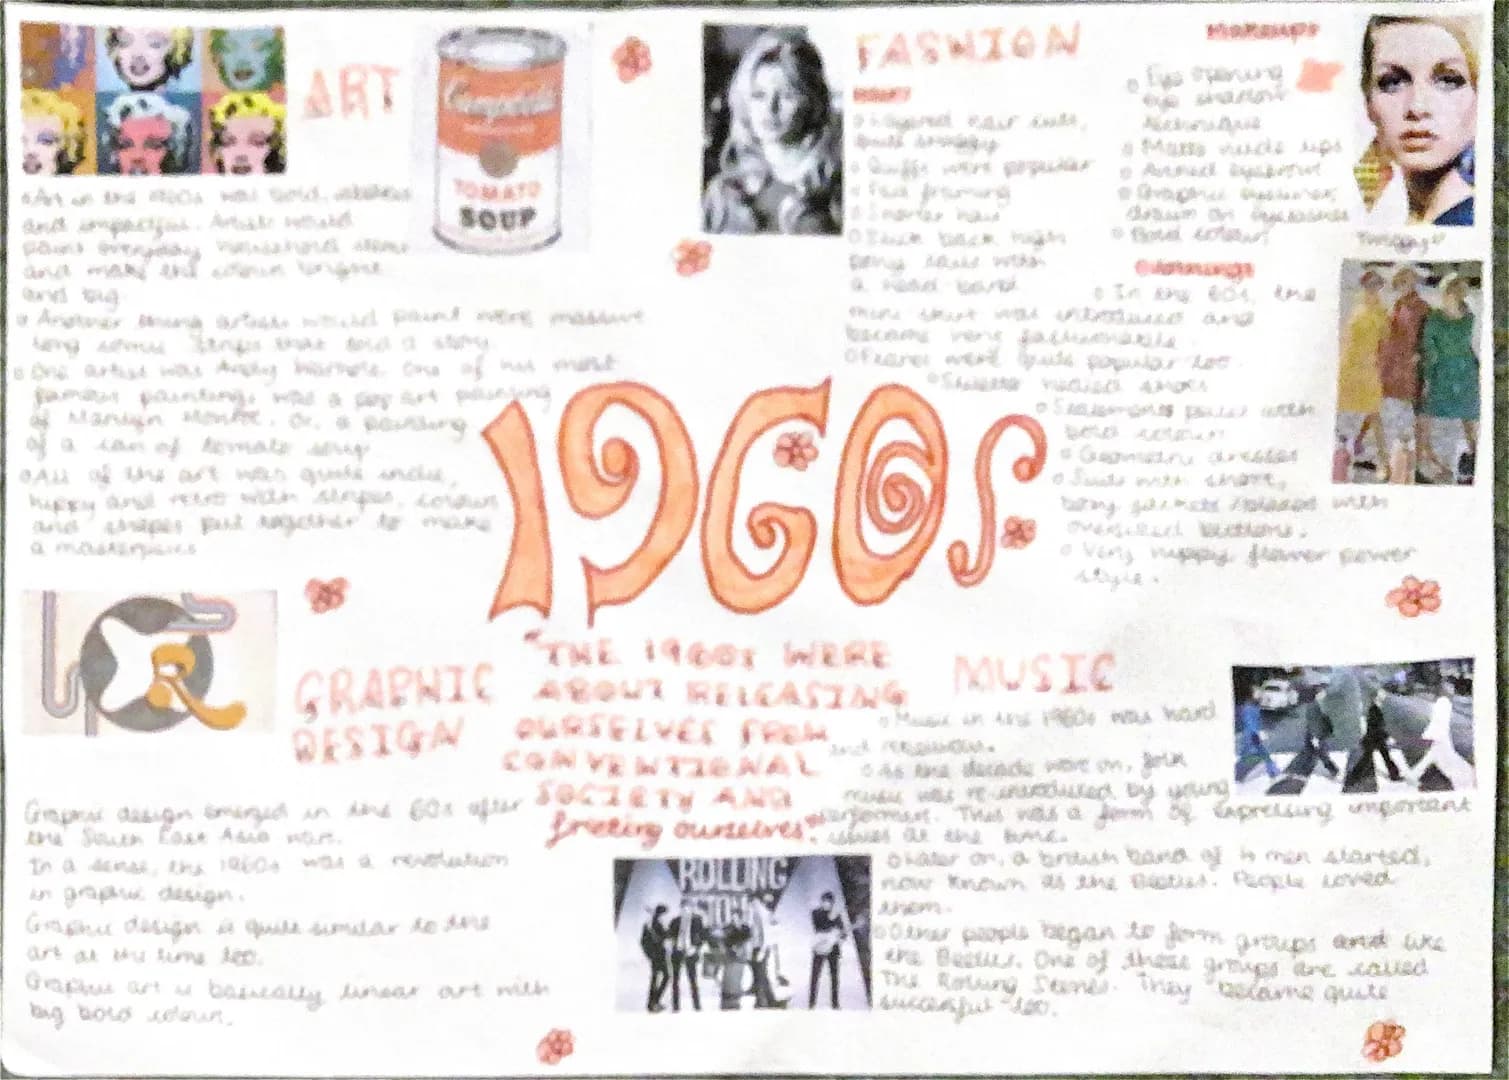 ART
Campbell's
TOMATO
SOUP
Art in the 1960s was bold,
and impactful. Artists would
paint everyday household items
and make the colour bright
and big.
Another thing artists would paint were massive
long comic strips that told a story.
One artist was Andy Warhole. One of his most
famous paintings was a pop art painting
of Marilyn Monroe. Or, a painting
of a can of tomato soup.
All of the art was quite indie,
hippy and retro with stripes, colour
and shapes put together to make
a masterpiece
FASHION
HAIR
Layered hair cuts,
quite shaggy
Quiffs were popular
Face framing
Shorter hair
Slick back high
pony tails with
a head band
Makeup
Eye opening
eye shadow
technique
Matte nude lips
Arched eyebrow
Graphic eyeliner,
drawn on eyelashes
Bold colour
Twiggy
Clothing
In the 60s, the
mini skirt was introduced and
became very fashionable.
Flares were quite popular too.
Stiletto heeled shoes
Statement pieces with
bold colour
Geometric dresses
Suits with short,
boxy jackets with
oversized buttons.
Very hippy flower power
style.
1960s
"THE 1960s WERE
ABOUT RELEASING
OURSELVES FROM
CONVENTIONAL
SOCIETY AND
freeing ourselves."
GRAPHIC
DESIGN
Graphic design emerged in the 60s after
the South East Asia war.
In a sense, the 1960s was a revolution
in graphic design.
Graphic design is quite similar to the
art at the time too.
Graphic art is basically linear art with
big bold colour.
MUSIC
Music in the 1960s was hard
and rebellious.
As the decade went on, folk
music was re-introduced by young
performers. This was a form of expressing important
issues at the time.
Later on, a british band of 4 men started,
now known as the Beatles. People loved
them.
Other people began to form groups and like
the Beatles. One of these groups are called
The Rolling Stones. They became quite
successful too.
ROLLING
STONES